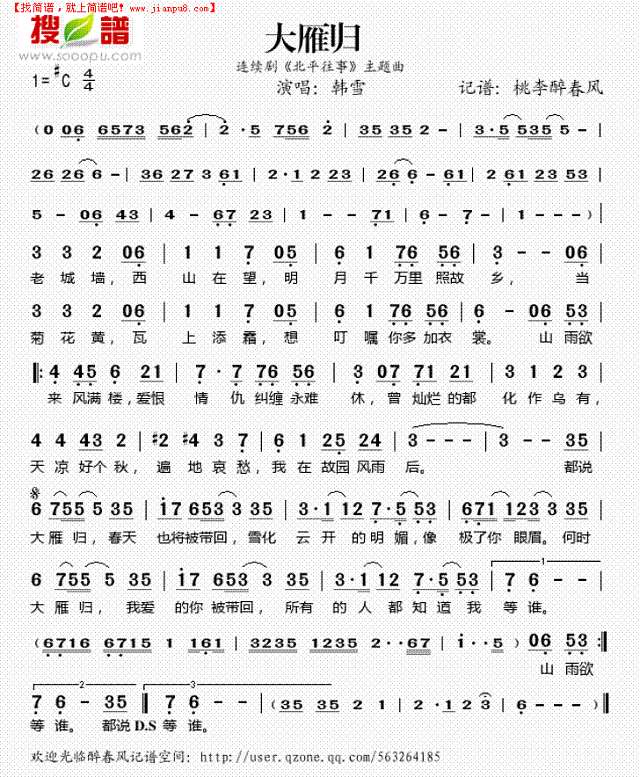 【找简谱,就上简谱吧!】
www.jianpu8.com
搜谱
www.sooopu.com
大雁归
连续剧《北平往事》主题曲
1=#C 4/4
演唱：韩雪
记谱：桃李醉春风
(0 06 6573 562 | 2·5 756 2 | 35 35 2 - | 3·5 535 5 - |
26 26 6 - | 36 27 3 61 | 2·1 2 23 | 26 6 - 61 | 2 61 23 53 |
5 - 06 43 | 4 - 67 23 | 1 - - 71 | 6 - 7 - | 1 - - - )|
3 3 2 06 | 1 1 7 05 | 6 1 76 56 | 3 - - 06 |
老城墙，西 山在望，明 月千万里照故 乡，当
3 3 2 06 | 1 1 7 05 | 6 1 76 56 | 6 - 06 53 |
菊花黄，瓦 上添霜，想 叮嘱你多加衣 裳。山雨欲
‖: 4 45 6 21 | 7·7 76 56 | 3 07 71 21 | 3 1 2 3 |
来风满楼，爱恨 情仇纠缠永难 休，曾灿烂的都 化作乌有，
4 4 43 2 | #2 #4 3 2 | 6 1 25 24 | 3 - - - | 3 - - 35 |
天凉好个秋，遍地哀愁，我在故园风雨 后。都说
6 755 5 35 | 17 653 3 35 | 3·1 12 7·5 53 | 671 123 3 35 |
大雁归，春天 也将被带回，雪化 云开的明媚，像 极了你眼眉。何时
1
6 755 5 35 | 17 653 3 35 | 3·1 12 7·5 53 | 7 6 - - |
大雁归，我爱 的你被带回，所有 的人都知道我 等谁。
(6716 6715 1 161 | 3235 1235 2··67 | 1··5) 06 53 :‖
山雨欲
2 3
7 6 - 35 ‖ 7 6 - - | (35 35 2 1 | 2·1 2 3 | 6 - - - )‖
等谁。都说 D.S 等谁。
欢迎光临醉春风记谱空间：http://user.qzone.qq.com/563264185